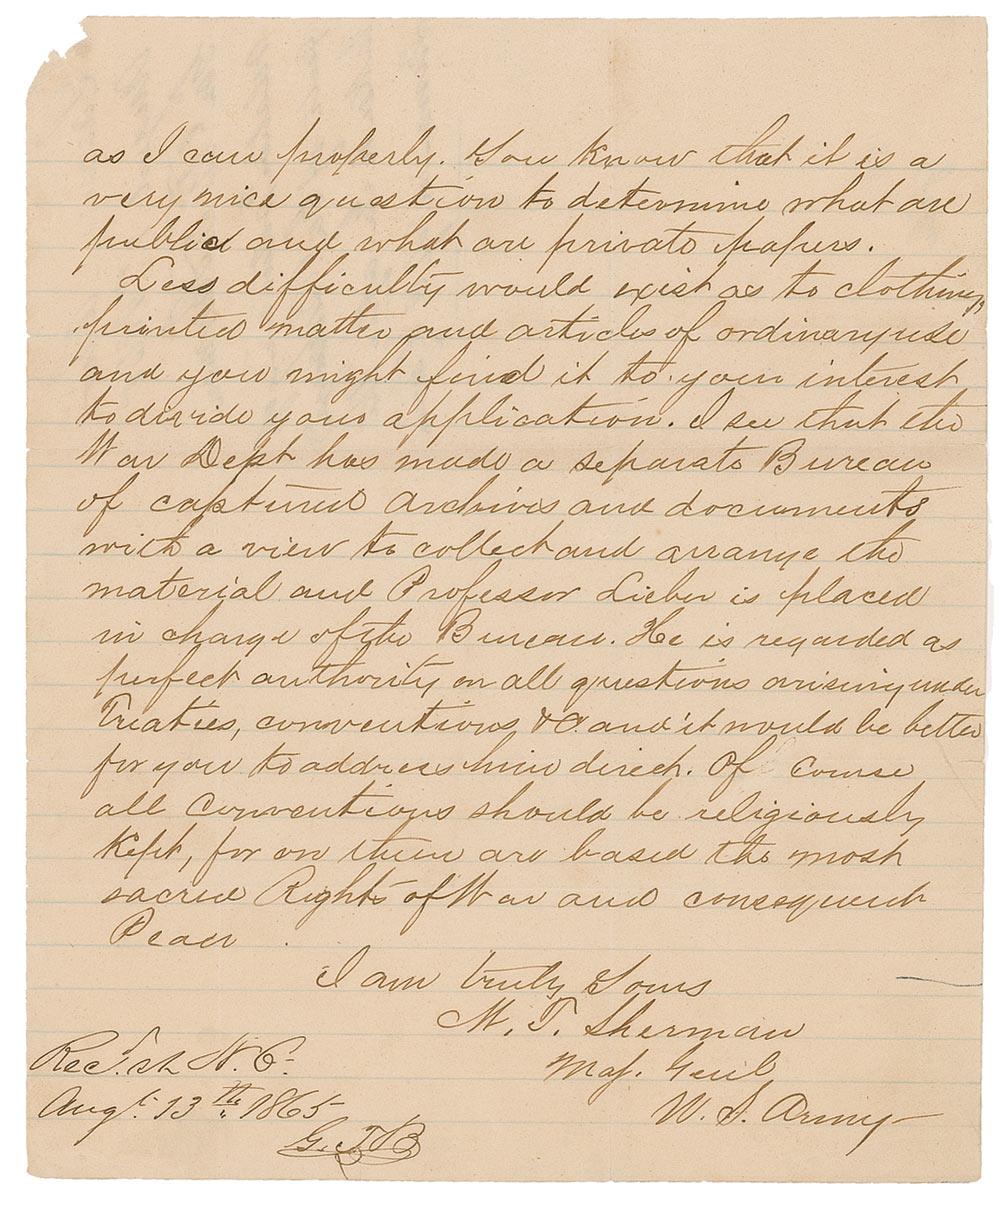 as I can properly. You know that it is a
very nice question to determine what are
public and what are private papers.
Less difficulty would exist as to clothing,
printed matter and articles of ordinary use
and you might find it to your interest
to divide your application. I see that the
War Dept has made a separate Bureau
of captured archives and documents
with a view to collect and arrange the
material and Professor Lieber is placed
in charge of the Bureau. He is regarded as
perfect authority on all questions arising under
Treaties, conventions &c. and it would be better
for you to address him direct. Of course
all Conventions should be religiously
Kept, for on them are based the most
sacred Rights of War and consequent
Peace
I am truly Yours
W. T. Sherman
Maj. Genl
U. S. Army
Recd. at N. O.
Augt. 13th 1865
G. T. B